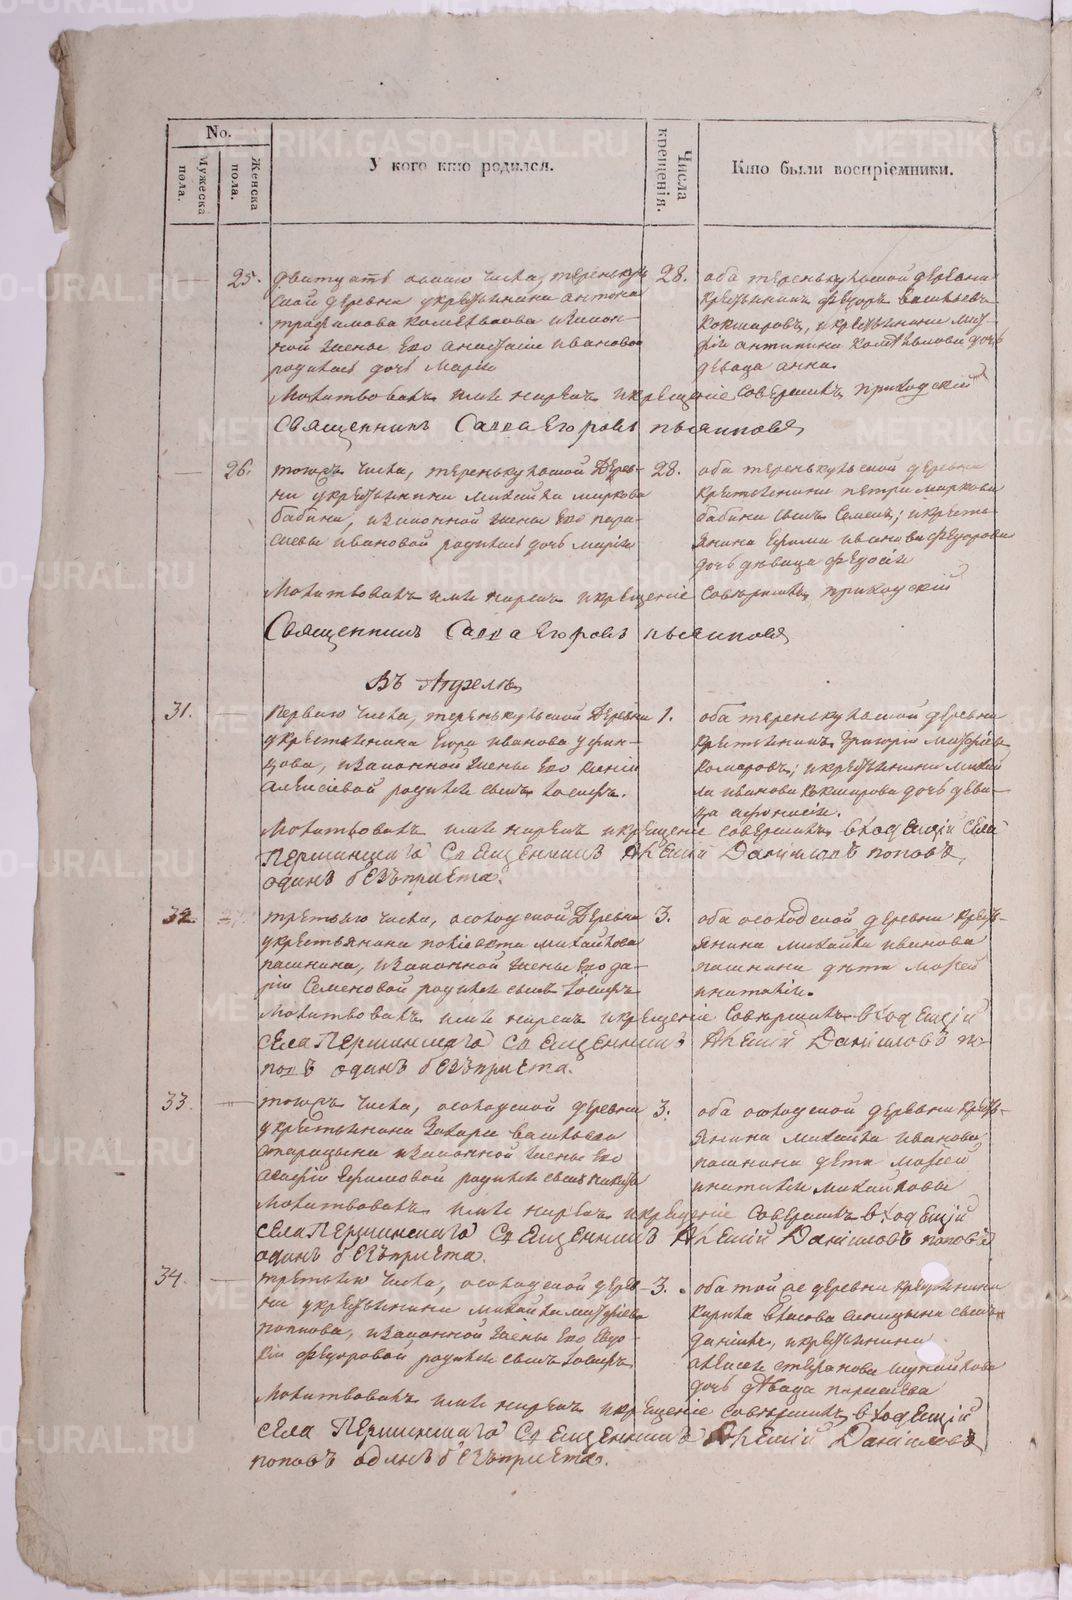 No.
Мужеска пола.
Женска пола.
У кого кто родился.
Числа крещенія.
Кто были воспріемники.
25.
дватцать осмаго числа, теренкуль
ской деревни укрестьянина антона
трофимова
ной жены Его анастасіи ивановой
родилась дочь Марія
28.
оба теренькульской деревни
крестьянинъ федоръ васильевъ
Кокшаровъ, и крестьянина
дочь
девица анна.
Молитвовалъ имя нарекъ икрещеніе совершилъ приходскій
Священникъ Савва Егоровъ пьянковъ
26.
тогожъ числа, теренькульской Дерев-
ни укрестьянина михайла маркова
бабина, изаконной жены Его пара-
скевы ивановой родилась дочь марія
28.
оба теренькульской деревни
крестьянина петра маркова
бабина сынъ Семенъ; икресть-
янина Ефима иванова федорова
дочь девица федосія
Молитвовалъ имя нарекъ икрещеніе совершилъ приходскій
Священникъ Савва Егоровъ пьянковъ
Въ Апрелѣ
31.
перваго числа, теренькульской Деревни
укрестьянина Егора иванова
изаконной жены Его ксеніи
Алексіевой родился сынъ іосифъ.
1.
оба теренькульской деревни
крестьянинъ Григорій
Комаровъ; икрестьянина михай
ла иванова кокшарова дочь деви-
ца афонасія.
Молитвовалъ имя нарекъ икрещеніе совершилъ входящій села
Першинскаго Священникъ Алексій Даніиловъ поповъ,
одинъ безъпричта.
32.
третьяго числа, осолодской Деревни
укрестьянина михайлова
пашнина, изаконной жены Его да-
ріи Семеновой родился сынъ іосифъ
3.
оба осолодской деревни крестъ-
янина михайла иванова
пашнина дети Моѵсей
инаталія.
Молитвовалъ имя нарекъ икрещеніе Совершилъ входящій
села Першинскаго Священникъ Алексій Даніиловъ по-
повъ одинъ безъпричта.
33.
тогожъ числа, осолодской деревни
укрестьянина Захара васильева
изаконной жены Его
Ефимовой родился сынъ
3.
оба осолодской деревни крестъ-
янина михайла иванова
пашнина дети Моѵсей
инаталія михайловы
Молитвовалъ имя нарекъ икрещеніе совершилъ входящій
села Першинскаго Священникъ Алексій Даніиловъ поповъ
одинъ безъпричта.
34.
третьяго числа, осолодской дерев-
ни укрестьянина михайла
попкова, изаконной жены Его Евдо-
кіи федоровой родился сынъ іосифъ
3.
оба той же деревни крестьянина
Кирила власова синицына сынъ
даніилъ, икрестьянина
алексея степанова
дочь девица парасъева
Молитвовалъ имя нарекъ икрещеніе совершилъ входящій
села Першинскаго Священникъ Алексій Даніиловъ
поповъ одинъ безъпричта.
METRIKI.GASO-URAL.RU